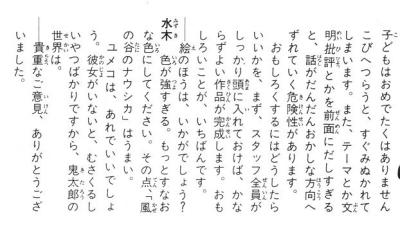 子どもはおめでたくはありません
こびへつらうと、すぐみぬかれて
しまいます。また、テーマとか文
明批評とかを前面にだしすぎる
と、話がだんだんおかしな方向へ
ずれていく危険性があります。
おもしろくするにはどうしたら
いいかを、まず、スタッフ全員が
しっかり頭に入れておけば、かな
らずよい作品が完成します。おも
しろいことが、いちばんです。
――絵のほうは、いかがでしょう?
水木 色が強すぎる。もっとすなお
な色にしてください。その点、『風
の谷のナウシカ』はうまい。
ユメコは、あれでいいでしょ
う。彼女がいないと、むさくるし
いやつばかりですから、鬼太郎の
世界は。
――貴重なご意見、ありがとうござ
いました。